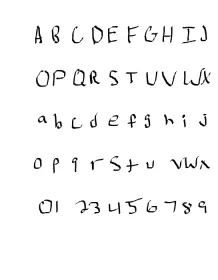 A B C D E F G H I J
O P Q R S T U V L W X
a b c d e f g h i j
o p q r s t u v w x
0 1 2 3 4 5 6 7 8 9